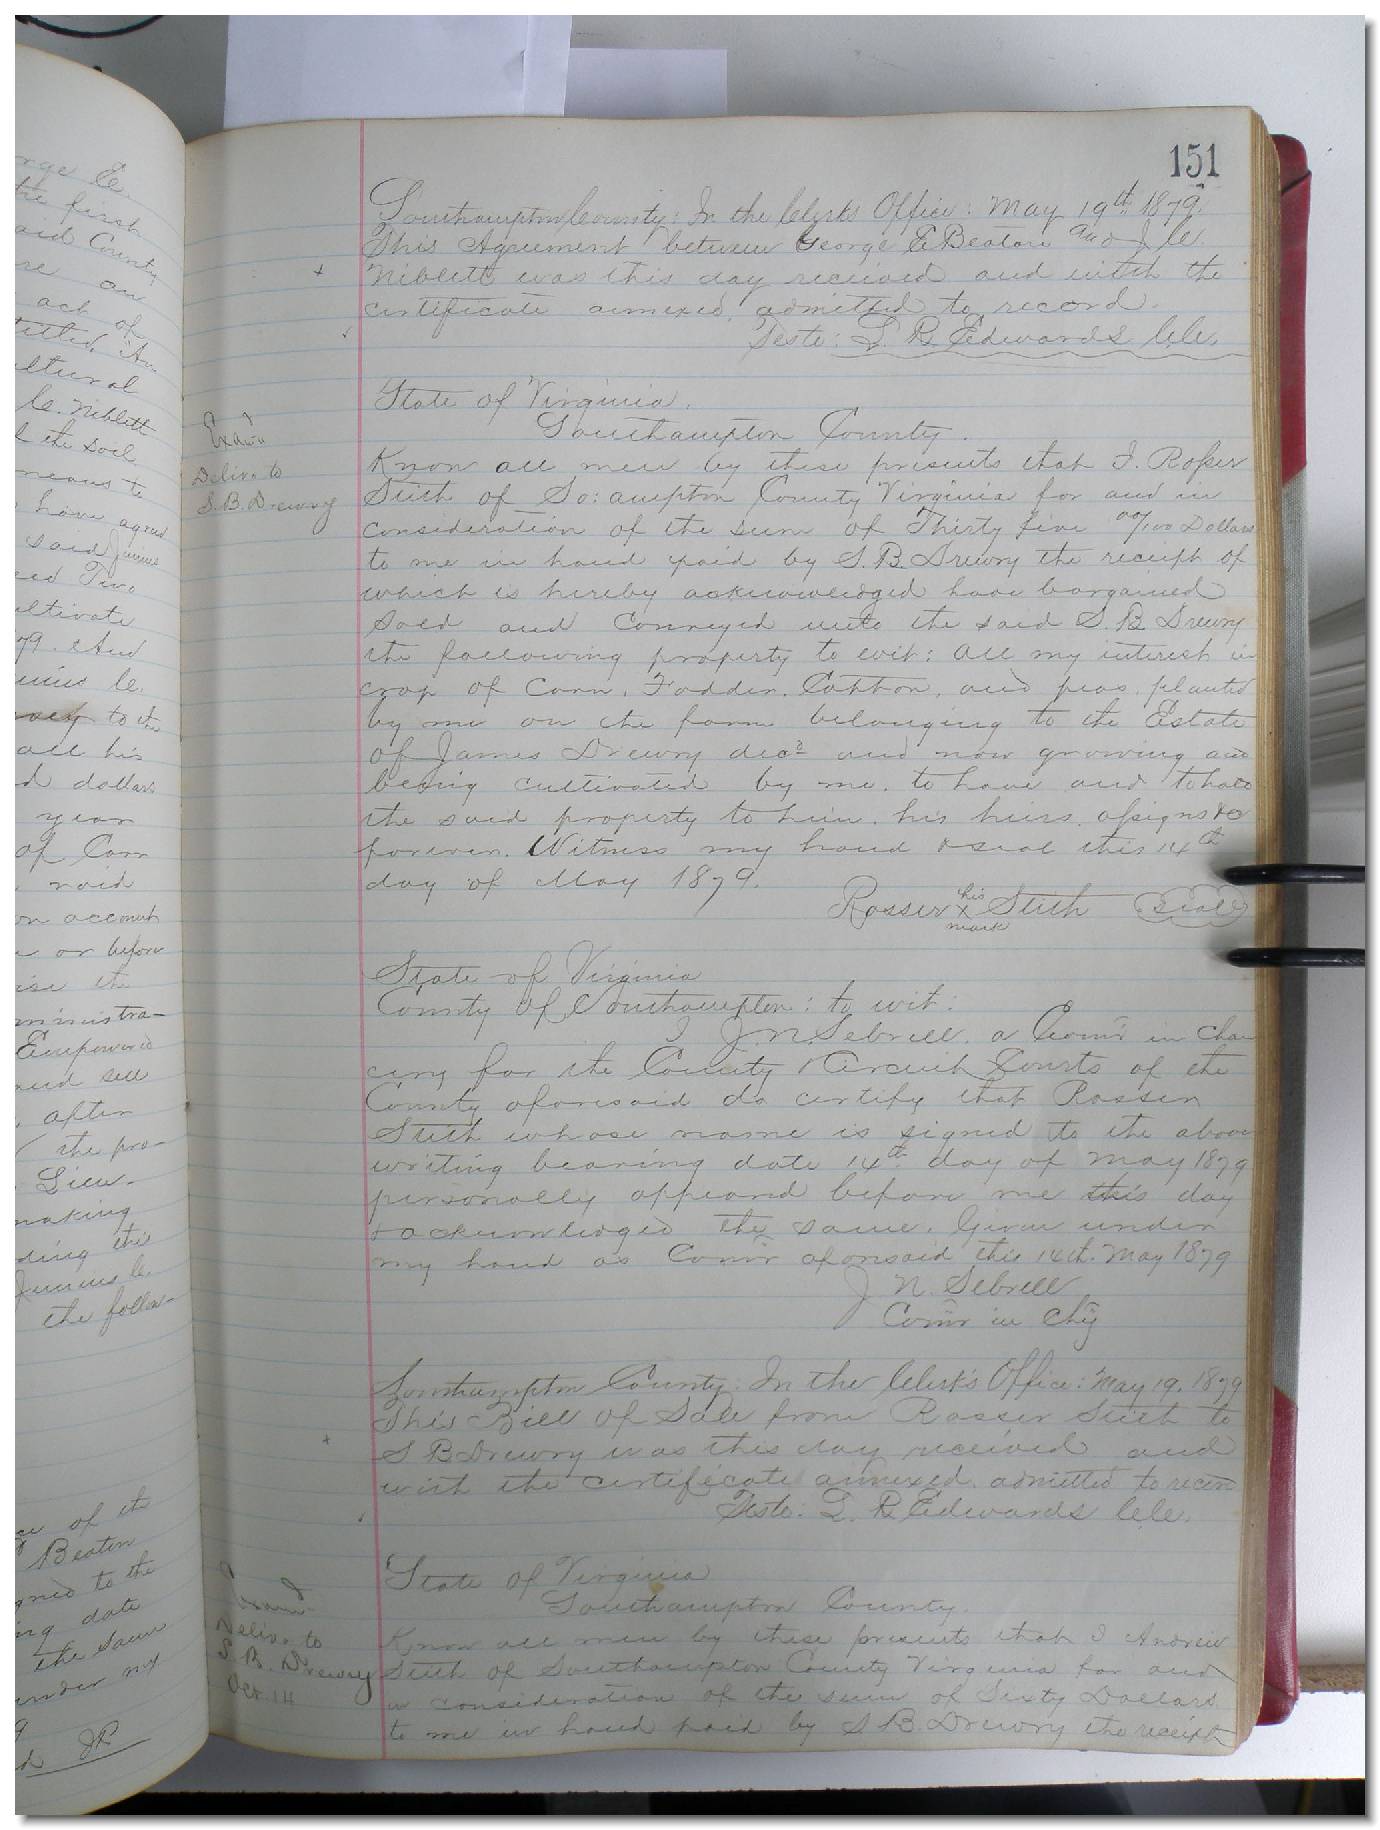 rge E.
the first
aid County
re an
act of
titled, "An
ultural
C. Niblett
l the soil
means to
have agreed
said Junius
ced Two
ultivate
79. And
unius C.
to the
all his
d dollars
year
of Corn
void
on account
or before
ise the
ministra-
Empowered
and sell
, after
the pro-
Lieu-
making
ding this
Junius C.
the follow-
ce of the
Beaton
gned to the
ng date
the same
under my
JP
151
Southampton County: In the Clerks Office: May 19th 1879.
This Agreement between George E Beaton and J. C.
Niblett was this day received and with the
certificate annexed, admitted to record.
Teste: L. R. Edwards Clk.
State of Virginia.
Southampton County.
Exd
Deliv. to
S.B. Drewry
Know all men by these presents that I. Rosser
Stith of So:ampton County Virginia for and in
consideration of the sum of Thirty five 00/100 Dollars
to me in hand paid by S. B. Drewry the receipt of
which is hereby acknowledged have bargained
Sold and Conveyed unto the said S. B. Drewry
the following property to wit: all my interest in
crop of Corn, Fodder, Cotton, and peas, planted
by me on the farm belonging to the Estate
of James Drewry decd and now growing and
being cultivated by me. to have and to hold
the said property to him, his heirs, assigns &c
forever. Witness my hand & seal this 14th
day of May 1879.
Rosser his x mark Stith seal
State of Virginia
County of Southampton: to wit:
I J. N. Sebrell, a Com'r in Chan
cery for the County & Circuit Courts of the
County aforesaid do certify that Rosser
Stith whose name is signed to the above
writing bearing date 14th day of May 1879
personally appeared before me this day
& acknowledged the same. Given under
my hand as Com'r aforesaid this 14th. May 1879
J N. Sebrell
Com'r in Chy
Southampton County: In the Clerk's Office: May 19. 1879
This Bill of Sale from Rosser Stith to
S B Drewry was this day received and
with the certificate annexed, admitted to record
Teste: L. R. Edwards Clk.
State of Virginia
Southampton County.
Deliv. to
S. B. Drewry
Oct. 14
Know all men by these presents that I Andrew
Stith of Southampton County Virginia for and
in consideration of the sum of Sixty Dollars
to me in hand paid by S B. Drewry the receipt